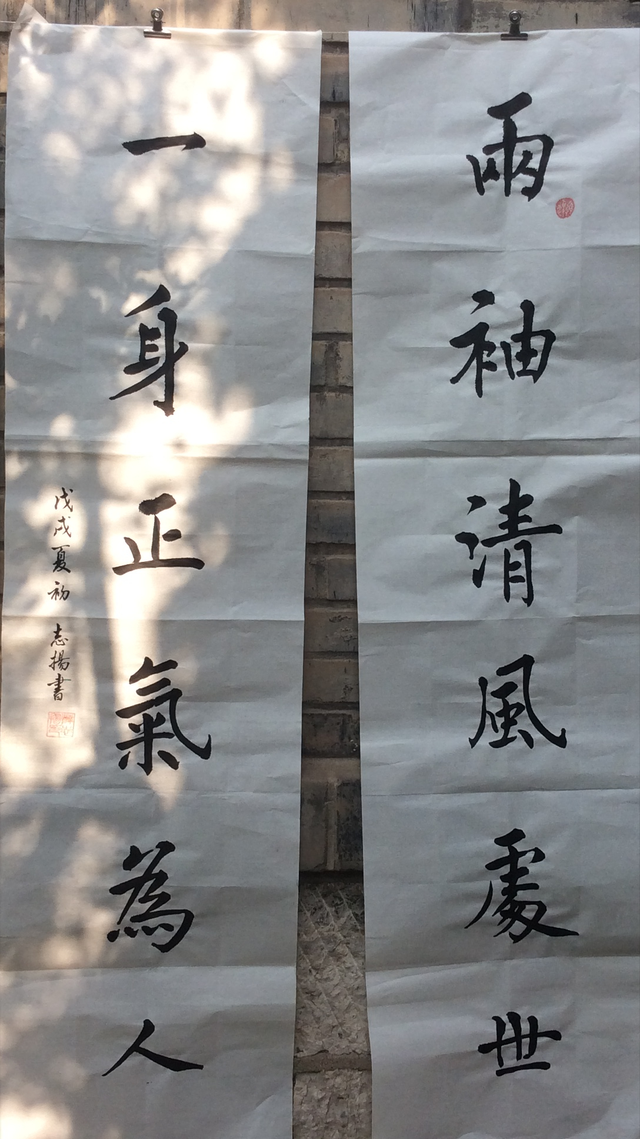 兩袖清風處世
一身正氣為人
戊戌夏初 志揚書